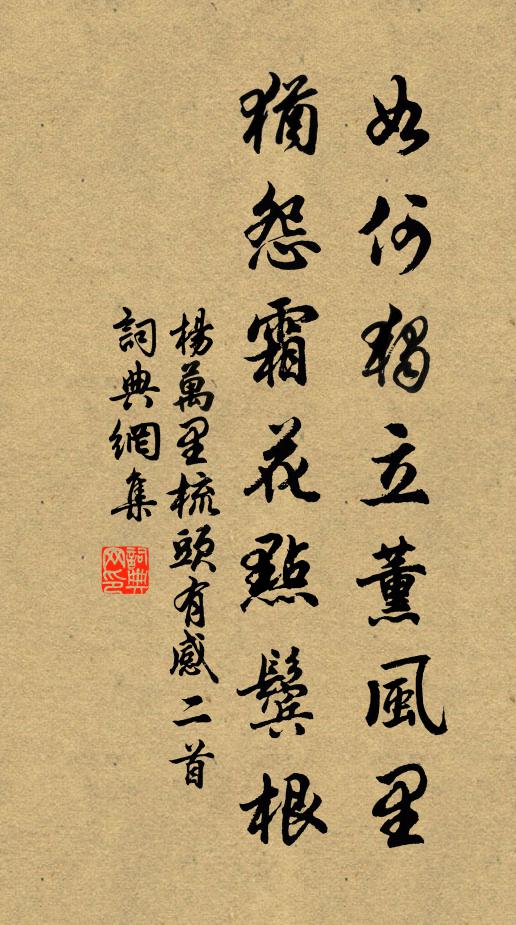 如何獨立薰風里
猶怨霜花點鬢根
楊萬里梳頭有感二首
詞典網集
詞典网印